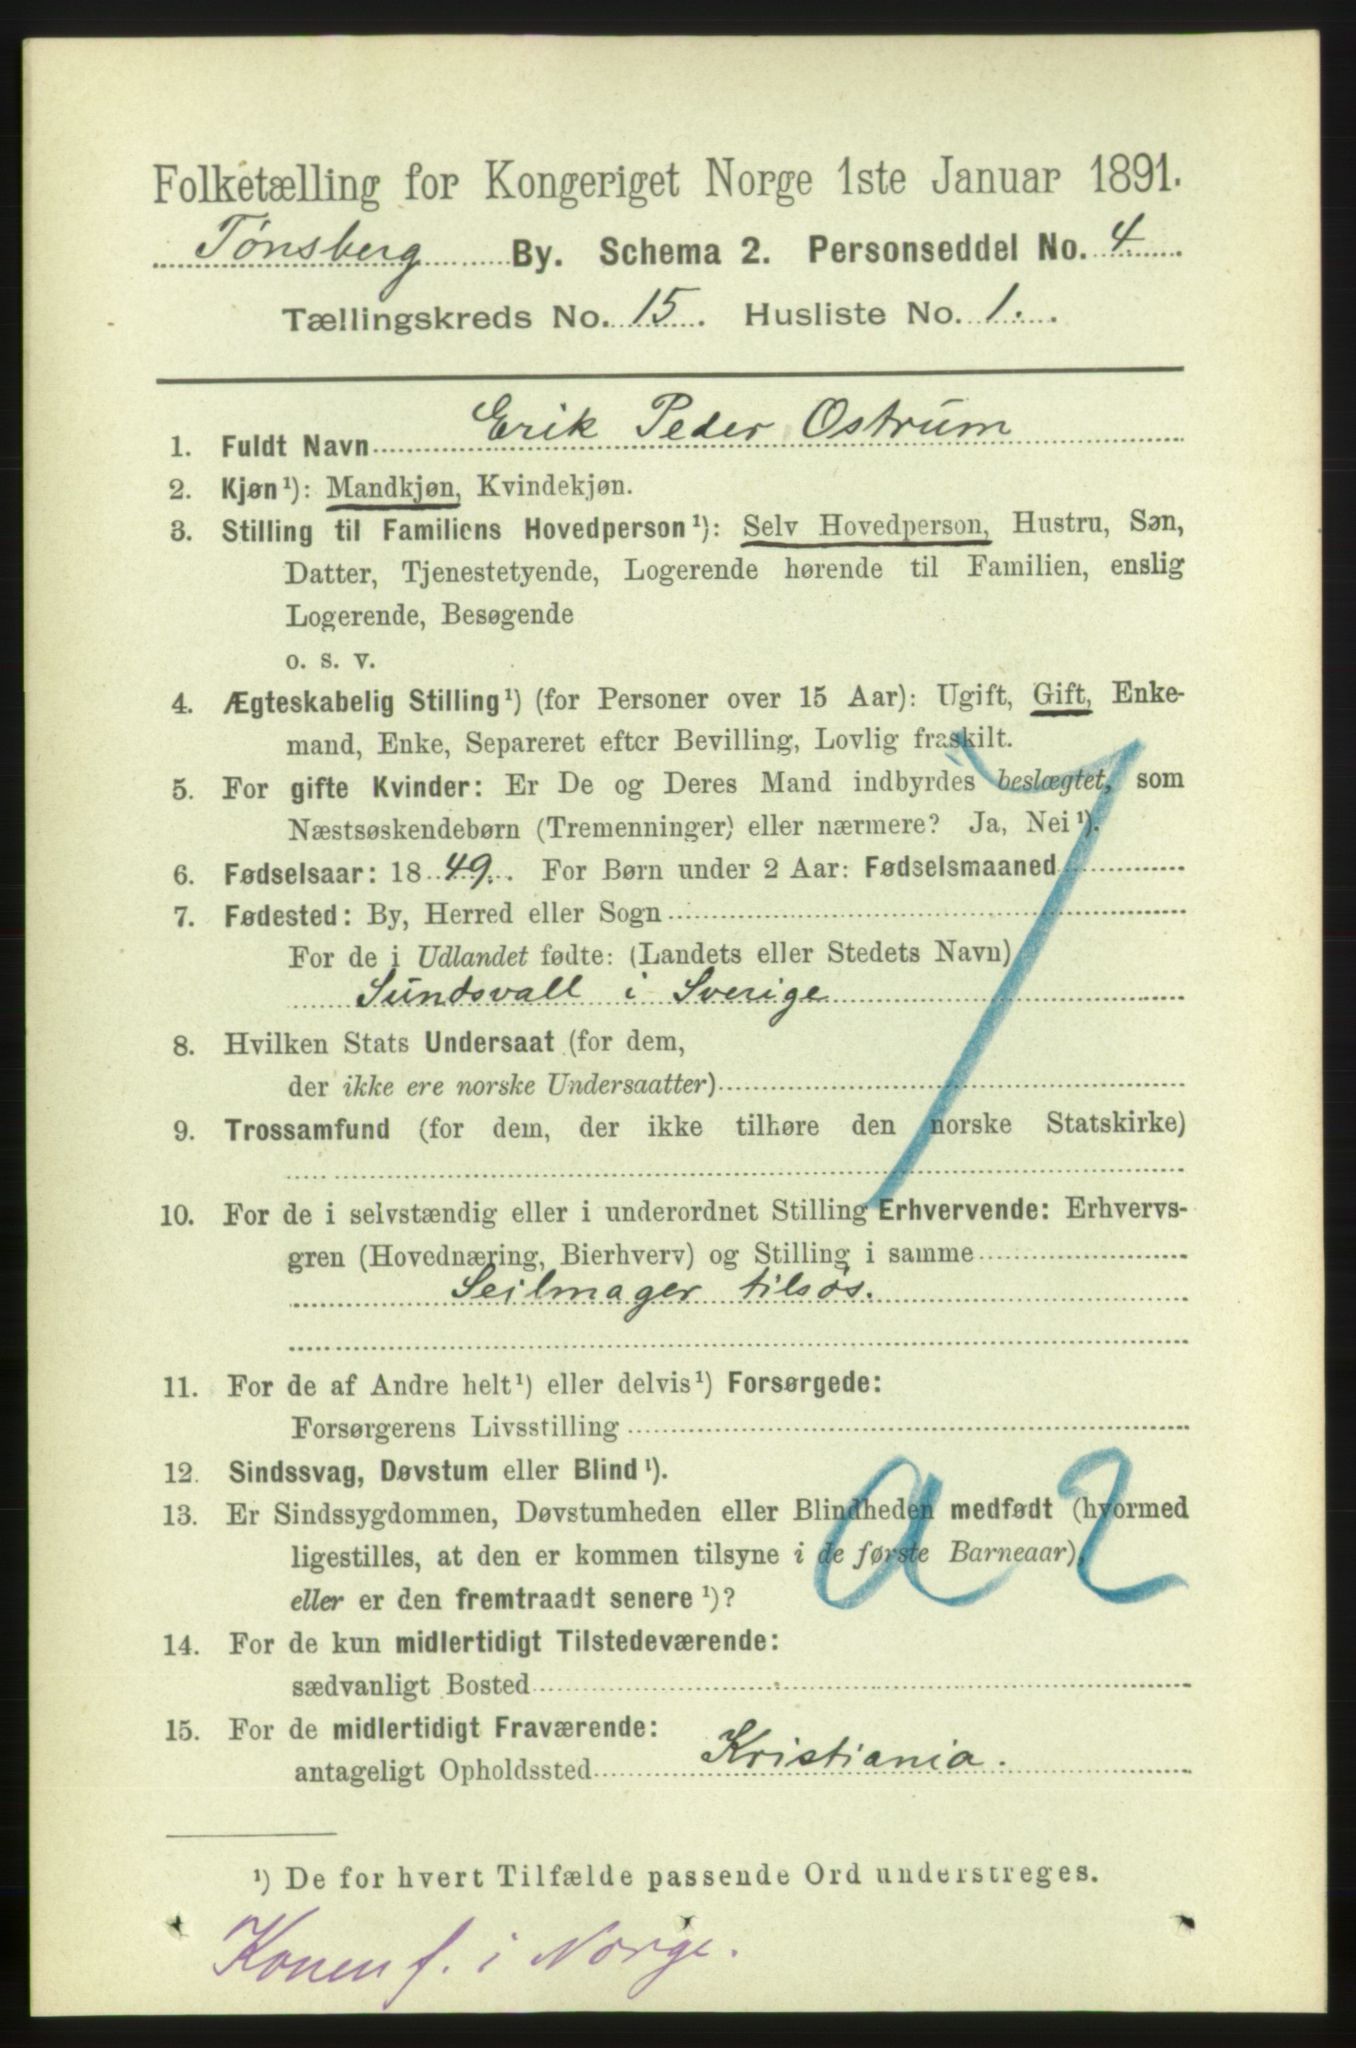 Folketælling for Kongeriget Norge 1ste Januar 1891.
Tønsberg By. Schema 2. Personseddel No. 4
Tællingskreds No. 15. Husliste No. 1.
1. Fuldt Navn Erik Peder Ostrum
2. Kjøn¹): Mandkjøn, Kvindekjøn.
3. Stilling til Familiens Hovedperson¹): Selv Hovedperson, Hustru, Søn,
Datter, Tjenestetyende, Logerende hørende til Familien, enslig
Logerende, Besøgende
o. s. v.
4. Ægteskabelig Stilling¹) (for Personer over 15 Aar): Ugift, Gift, Enke-
mand, Enke, Separeret efter Bevilling, Lovlig fraskilt.
5. For gifte Kvinder: Er De og Deres Mand indbyrdes beslægtet, som
Næstsøskendebørn (Tremenninger) eller nærmere? Ja, Nei¹).
6. Fødselsaar: 1849. For Børn under 2 Aar: Fødselsmaaned
7. Fødested: By, Herred eller Sogn
For de i Udlandet fødte: (Landets eller Stedets Navn)
Sundsvall i Sverige
8. Hvilken Stats Undersaat (for dem,
der ikke ere norske Undersaatter)
9. Trossamfund (for dem, der ikke tilhøre den norske Statskirke)
10. For de i selvstændig eller i underordnet Stilling Erhvervende: Erhvervs-
gren (Hovednæring, Bierhverv) og Stilling i samme
Seilmager tilsøs.
11. For de af Andre helt¹) eller delvis¹) Forsørgede:
Forsørgerens Livsstilling
12. Sindssvag, Døvstum eller Blind¹).
13. Er Sindssygdommen, Døvstumheden eller Blindheden medfødt (hvormed
ligestilles, at den er kommen tilsyne i de første Barneaar),
eller er den fremtraadt senere¹)?
a 2
14. For de kun midlertidigt Tilstedeværende:
sædvanligt Bosted
15. For de midlertidigt Fraværende:
antageligt Opholdssted Kristiania.
¹) De for hvert Tilfælde passende Ord understreges.
Konen f. i Norge.